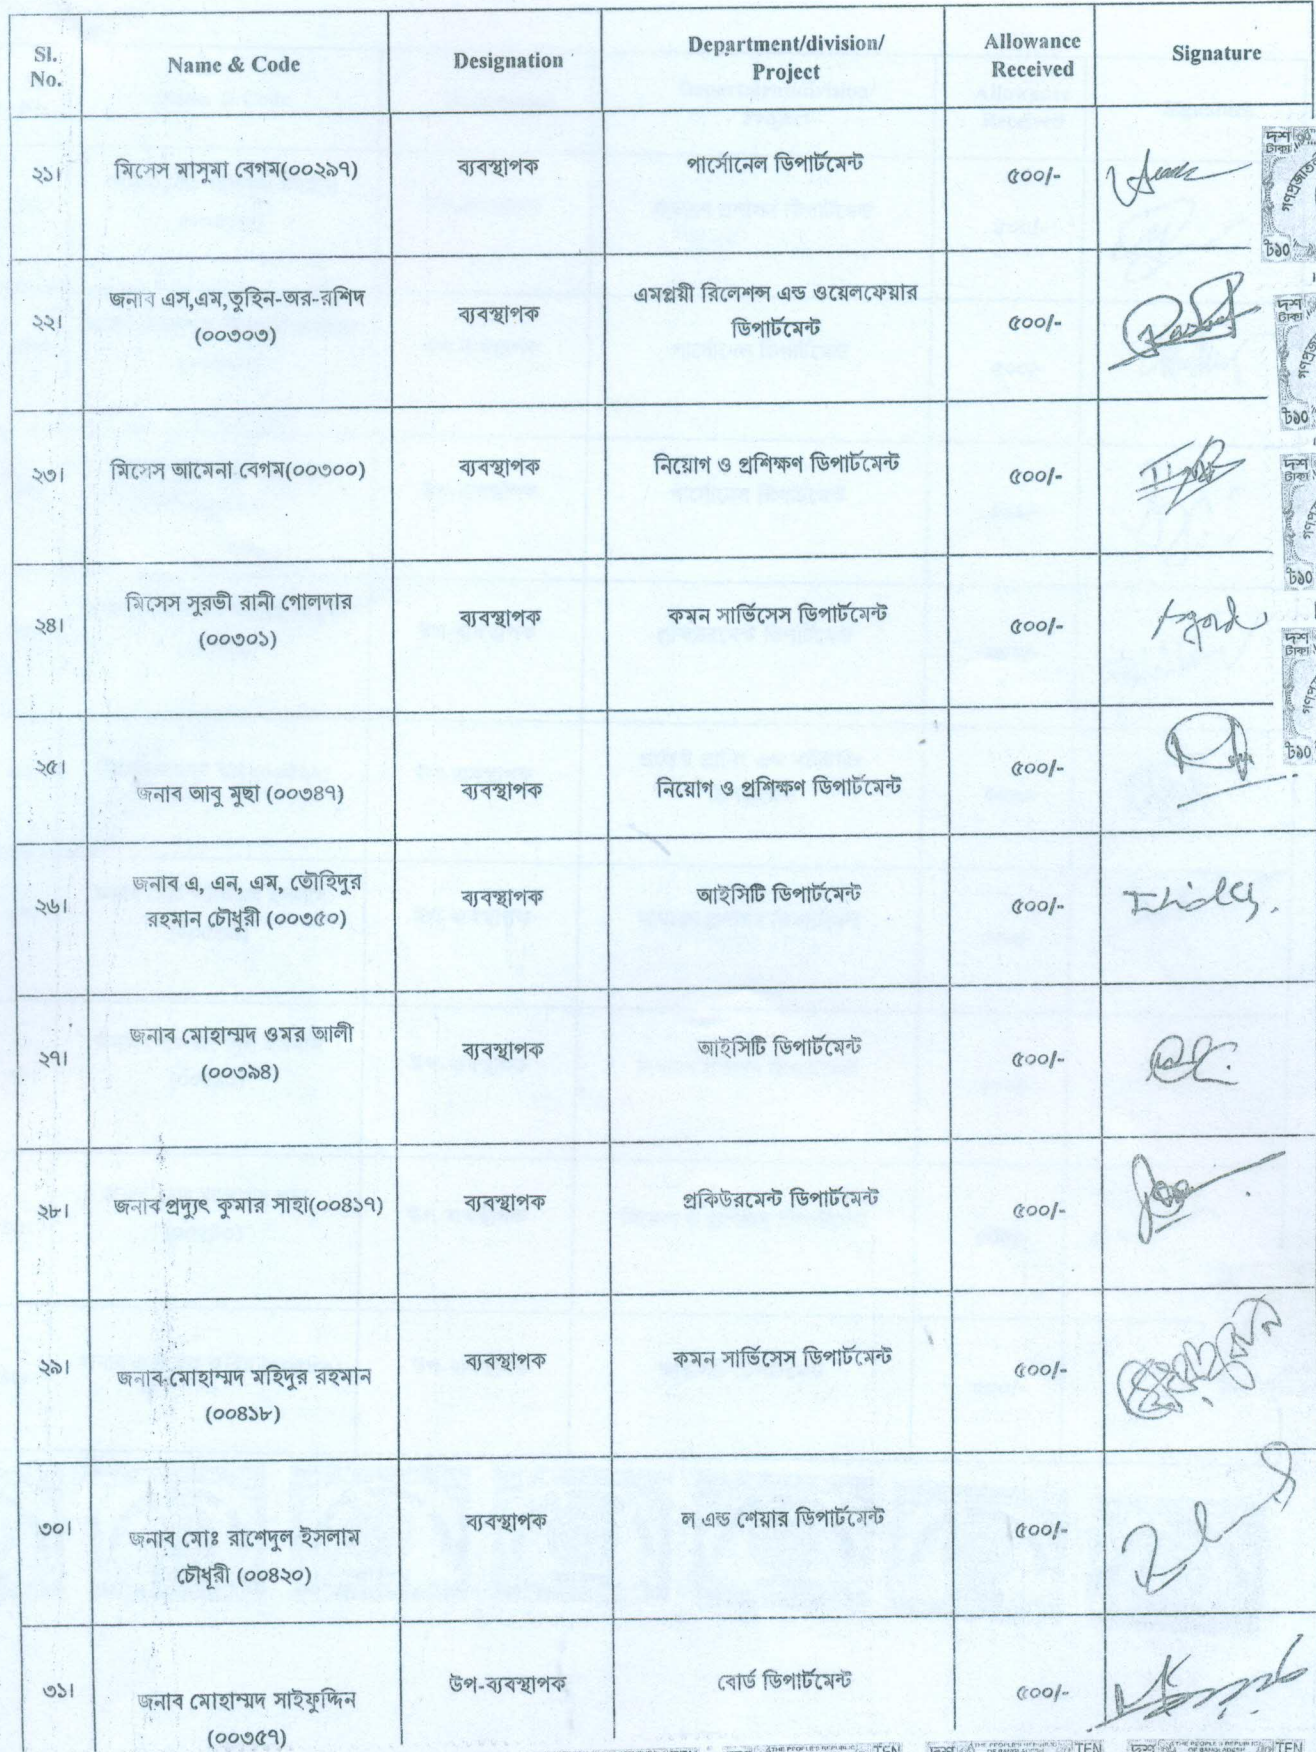 Sl. No. Name & Code Designation Department/division/ Project Allowance Received Signature
২১। মিসেস মাসুমা বেগম(০০২৯৭) ব্যবস্থাপক পার্সোনেল ডিপার্টমেন্ট ৫০০/-
২২। জনাব এস,এম,তুহিন-অর-রশিদ (০০৩০৩) ব্যবস্থাপক এমপ্লয়ী রিলেশন্স এন্ড ওয়েলফেয়ার ডিপার্টমেন্ট ৫০০/-
২৩। মিসেস আমেনা বেগম(০০৩০০) ব্যবস্থাপক নিয়োগ ও প্রশিক্ষণ ডিপার্টমেন্ট ৫০০/-
২৪। মিসেস সুরভী রানী গোলদার (০০৩০১) ব্যবস্থাপক কমন সার্ভিসেস ডিপার্টমেন্ট ৫০০/-
২৫। জনাব আবু মুছা (০০৩৪৭) ব্যবস্থাপক নিয়োগ ও প্রশিক্ষণ ডিপার্টমেন্ট ৫০০/-
২৬। জনাব এ, এন, এম, তৌহিদুর রহমান চৌধুরী (০০৩৫০) ব্যবস্থাপক আইসিটি ডিপার্টমেন্ট ৫০০/-
২৭। জনাব মোহাম্মদ ওমর আলী (০০৩৯৪) ব্যবস্থাপক আইসিটি ডিপার্টমেন্ট ৫০০/-
২৮। জনাব প্রদ্যুৎ কুমার সাহা(০০৪১৭) ব্যবস্থাপক প্রকিউরমেন্ট ডিপার্টমেন্ট ৫০০/-
২৯। জনাব মোহাম্মদ মহিদুর রহমান (০০৪১৮) ব্যবস্থাপক কমন সার্ভিসেস ডিপার্টমেন্ট ৫০০/-
৩০। জনাব মোঃ রাশেদুল ইসলাম চৌধুরী (০০৪২০) ব্যবস্থাপক ল এন্ড শেয়ার ডিপার্টমেন্ট ৫০০/-
৩১। জনাব মোহাম্মদ সাইফুদ্দিন (০০৩৫৭) উপ-ব্যবস্থাপক বোর্ড ডিপার্টমেন্ট ৫০০/-
দশ টাকা
৳১০
দশ টাকা
৳১০
দশ টাকা
৳১০
দশ টাকা
৳১০